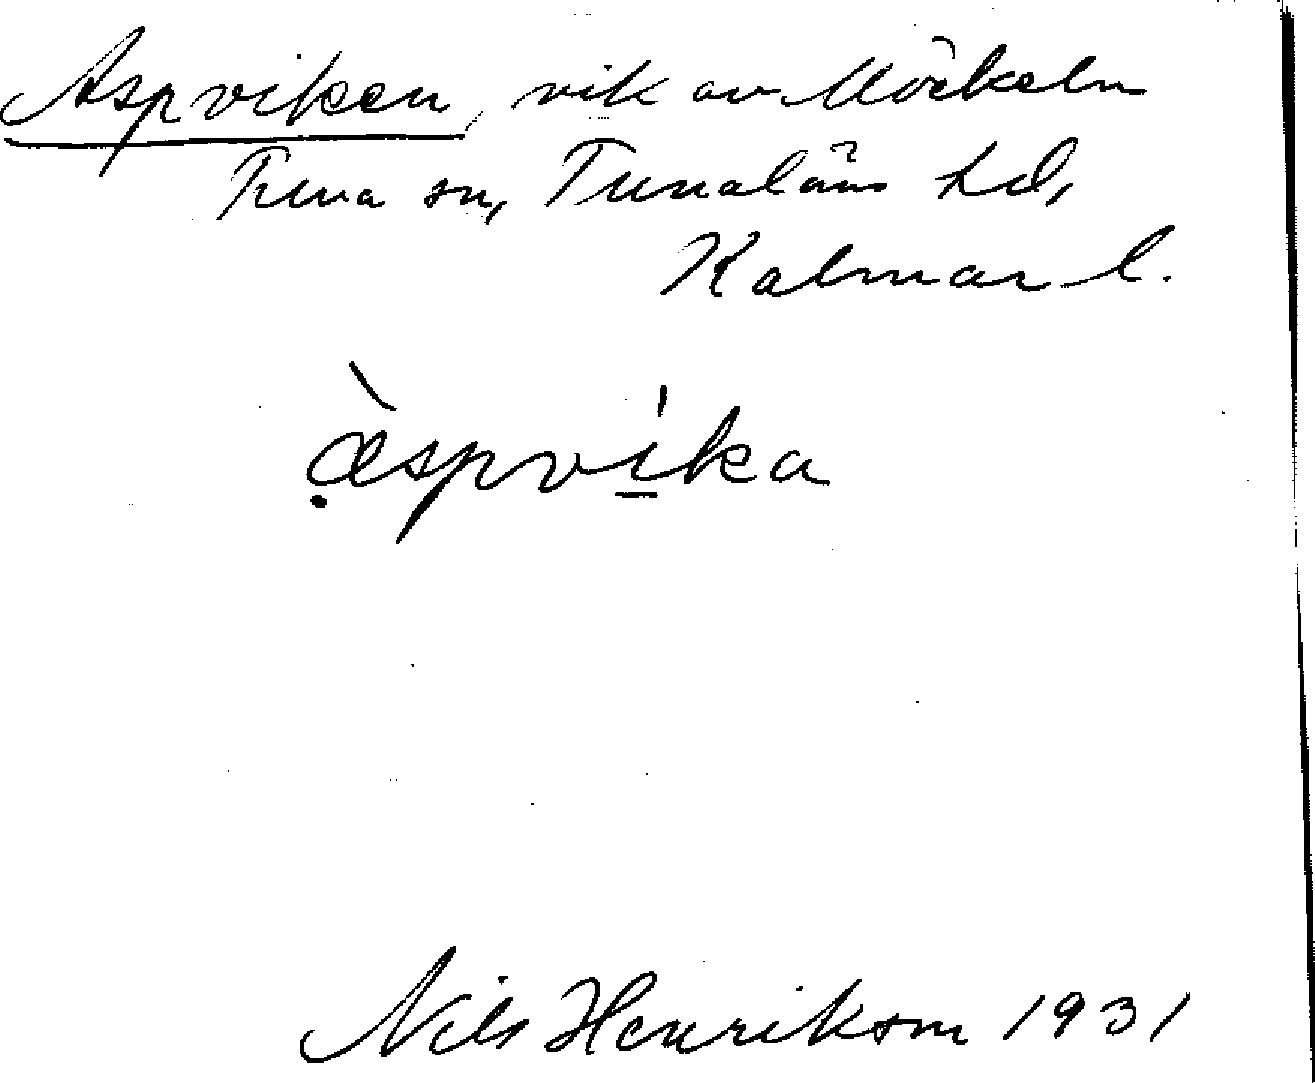 Aspviken, vik av Möckeln
Tuna sn, Tunaläns hd,
Kalmar l.
æ̣̀spvi̱̍ka
Nils Henrikson 1931